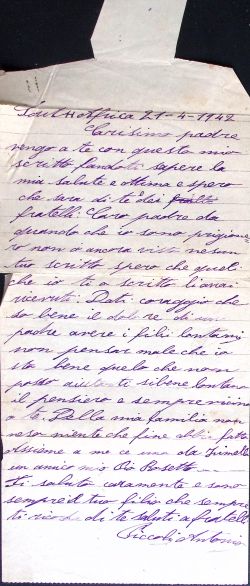 Sout H Africa 21-4-1942
Carisimo padre
vengo a te con questo mio
scritto fandoti sapere la
mia salute e ottima e spero
che sara di te e dei
fratelli Caro padre da
quando che io sono prigione
ro non o ancora visto nesun
tuo scritto spero che queli
che io ti o scritto li avrai
ricevuti Dati coraggio che
so bene il dolore di un
padre avere i fili lontani
non pensar male che io
sto bene quelo che non
posso aiutarti sibene lontano
il pensiero e sempre vicino
a te Della mia familia non
neso niente che fine abbia fatto
assieme a me ce uno da
un amico mio Rosetto
Ti saluto caramente e sono
sempre il tuo filio che sempre
ti ricorda di te saluti a fratelli
Piccoli Antonio